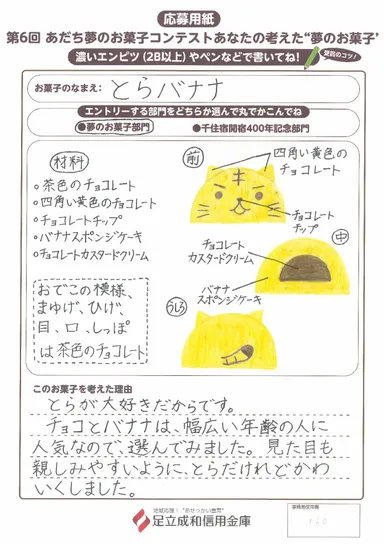 応募用紙
第6回 あだち夢のお菓子コンテストあなたの考えた“夢のお菓子”
濃いエンピツ（2B以上）やペンなどで書いてね！
受賞のコツ！
お菓子のなまえ： とらバナナ
エントリーする部門をどちらか選んで丸でかこんでね
●夢のお菓子部門 ●千住宿開宿400年記念部門
材料
○茶色のチョコレート
○四角い黄色のチョコレート
○チョコレートチップ
○バナナスポンジケーキ
○チョコレートカスタードクリーム
おでこの模様、
まゆげ、ひげ、
目、口、しっぽ
は茶色のチョコレート
前
四角い黄色の
チョコレート
チョコレート
チップ
中
チョコレート
カスタードクリーム
バナナ
スポンジケーキ
うしろ
このお菓子を考えた理由
とらが大好きだからです。
チョコとバナナは、幅広い年齢の人に
人気なので、選んでみました。見た目も
親しみやすいように、とらだけれどかわ
いくしました。
地域応援！“おせっかい宣言”
足立成和信用金庫